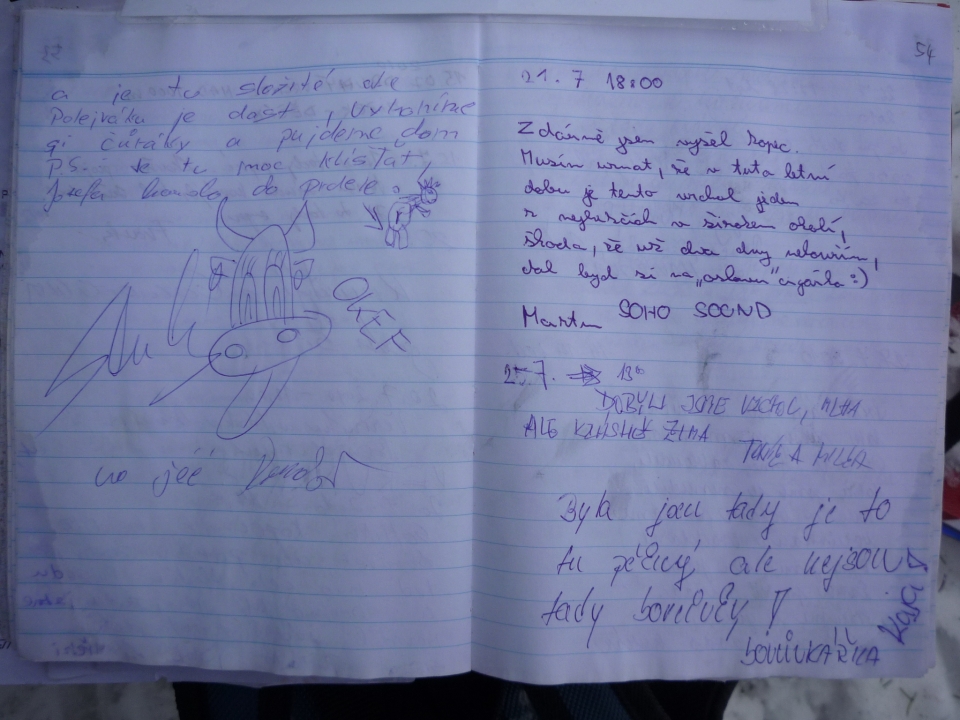 a je tu složité ale
Polejvka je dost, vyhoníme
qi čůráky a pujdeme dom
P.S. je tu moc klíšťat,
do prdele.
OKEF
no jéé
54
21. 7 18:00
Zdárně jsem vyšel kopec.
Musím uznat, že v tuto letní
dobu je tento vrchol jeden
z nejhezčích v širokém okolí,
škoda, že už dva dny nekouřím,
dal bych si na „oslavu" cigárko :)
Martin SOHO SOUND
25.7. 13⁰⁰
DOBYLI JSME VRCHOL, MLHA
ALE ZIMA
A
Byla jsem tady je to
tu pěkný ale nejsou
tady borůvky
BORŮVKÁŘKA
Kája